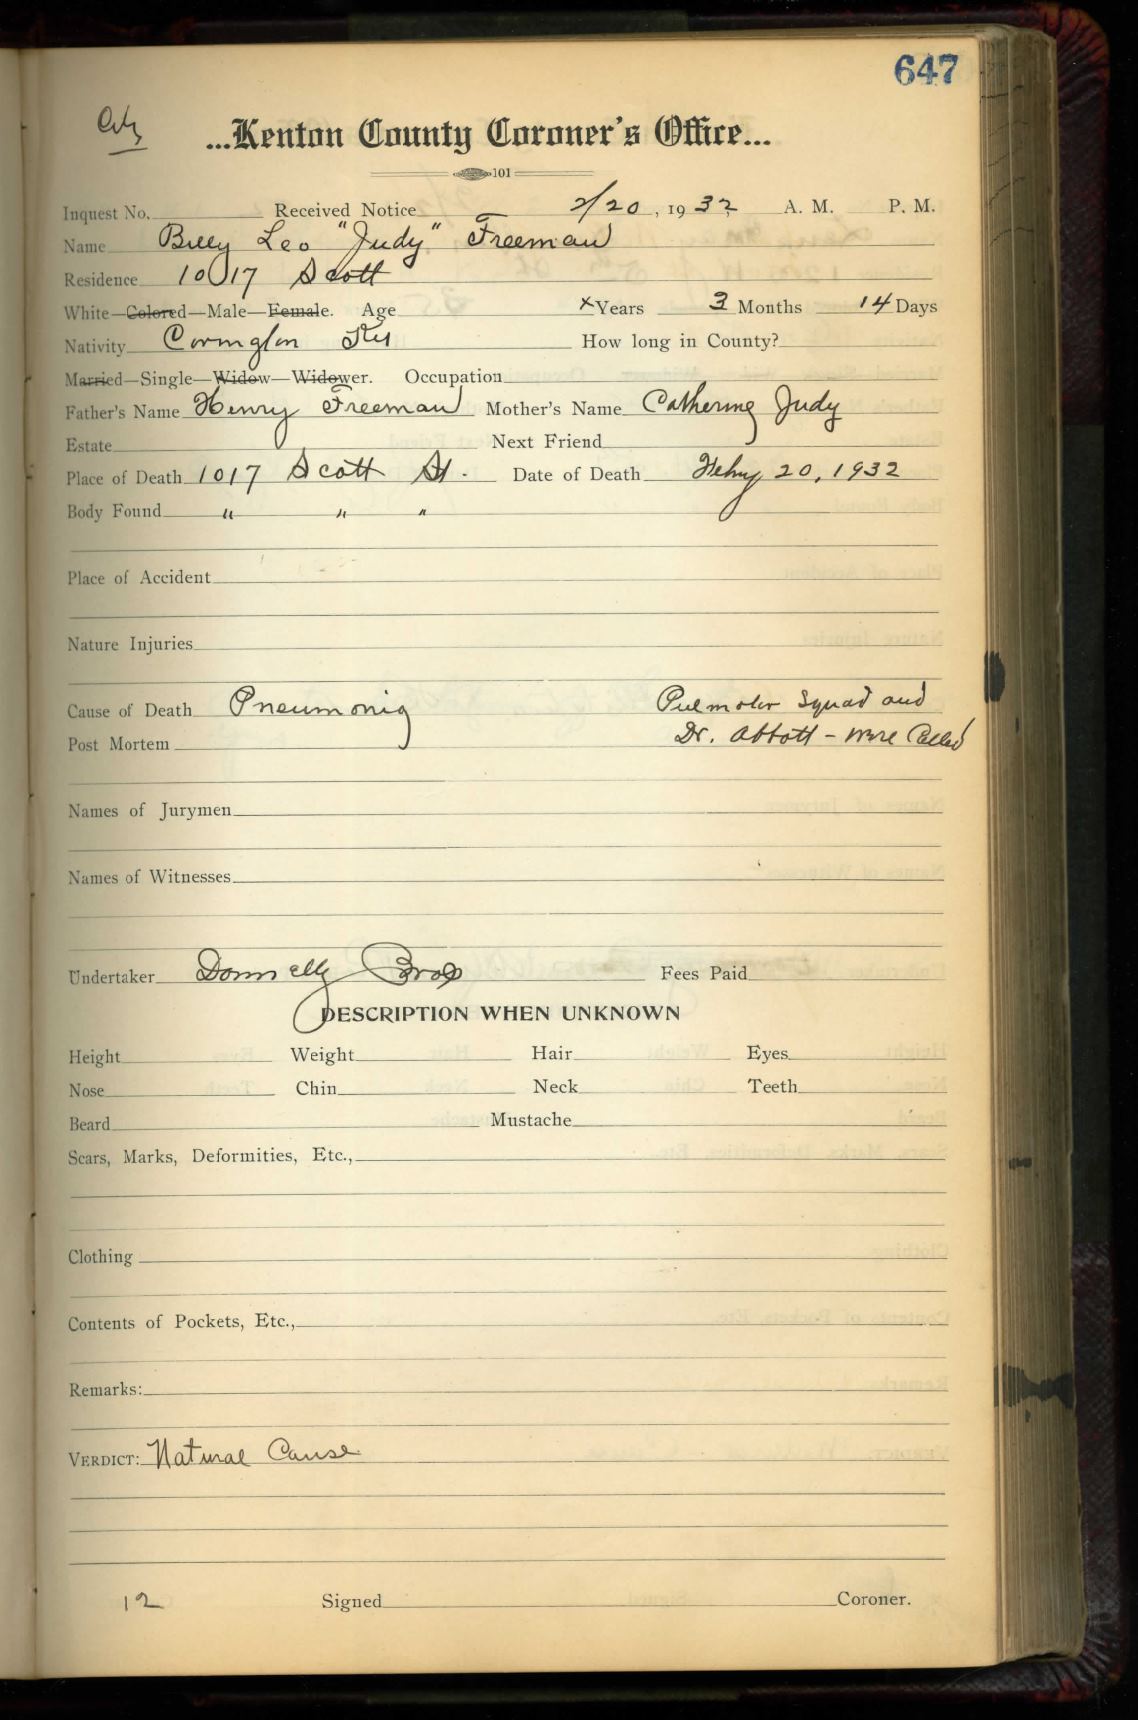 647
City
...Kenton County Coroner's Office...
101
Inquest No. Received Notice 2/20, 1932 A. M. P. M.
Name Billy Leo "Judy" Freeman
Residence 1017 Scott
White—Colored—Male—Female. Age x Years 3 Months 14 Days
Nativity Covington Ky How long in County?
Married—Single—Widow—Widower. Occupation
Father's Name Henry Freeman Mother's Name Catherine Judy
Estate Next Friend
Place of Death 1017 Scott St. Date of Death Feby 20, 1932
Body Found " " "
Place of Accident
Nature Injuries
Cause of Death Pneumonia Pulmotor Squad and
Post Mortem Dr. Abbott - were Called
Names of Jurymen
Names of Witnesses
Undertaker Donnelly Bros Fees Paid
DESCRIPTION WHEN UNKNOWN
Height Weight Hair Eyes
Nose Chin Neck Teeth
Beard Mustache
Scars, Marks, Deformities, Etc.,
Clothing
Contents of Pockets, Etc.,
Remarks:
VERDICT: Natural Cause
12 Signed Coroner.